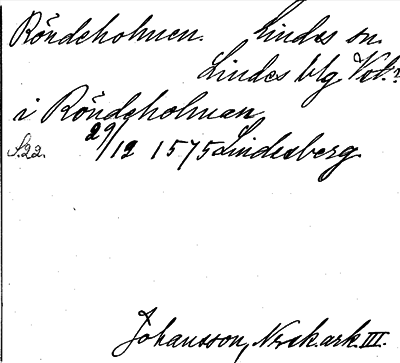 Röndeholmen. Lindes sn.
Lindes blg Vstm.
i Röndeholman
S.22. 29/12 1575 Lindesberg
Johansson, Norsk.ark. III.